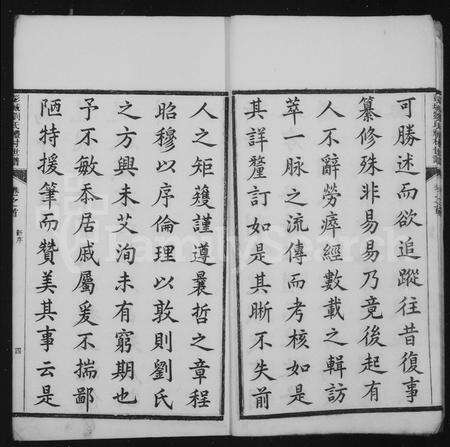 可勝述而欲追蹤往昔復事
纂修殊非易易乃竟後起有
人不辭勞瘁經數載之輯訪
萃一脉之流傳而考核如是
其詳釐訂如是其晰不失前
人之矩矱謹遵曩哲之章程
昭穆以序倫理以敦則劉氏
之方興未艾洵未有窮期也
予不敏忝居戚屬爰不揣鄙
陋特援筆而贊美其事云是
彭城劉氏
村世譜
卷之首
新序
四
FamilySearch